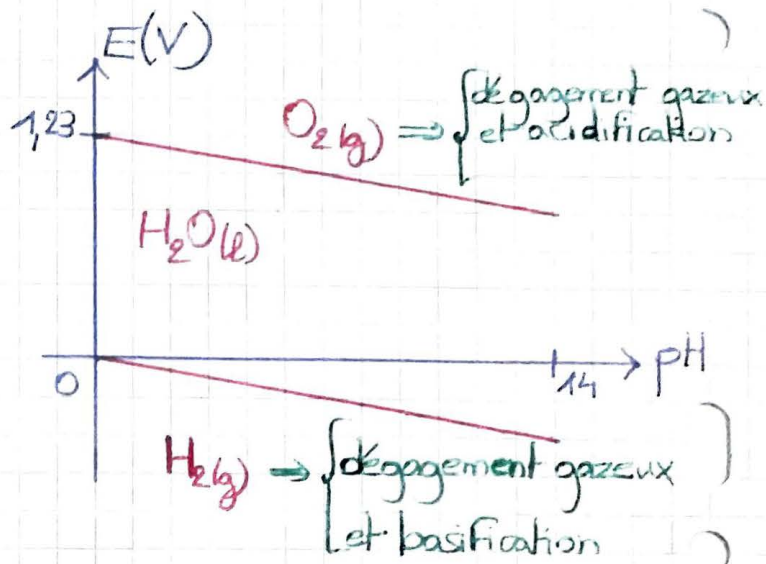 E(V)
1,23
O₂(g) ⇒ { dégagement gazeux
et acidification
H₂O(l)
0
14
pH
H₂(g) ⇒ { dégagement gazeux
et basification